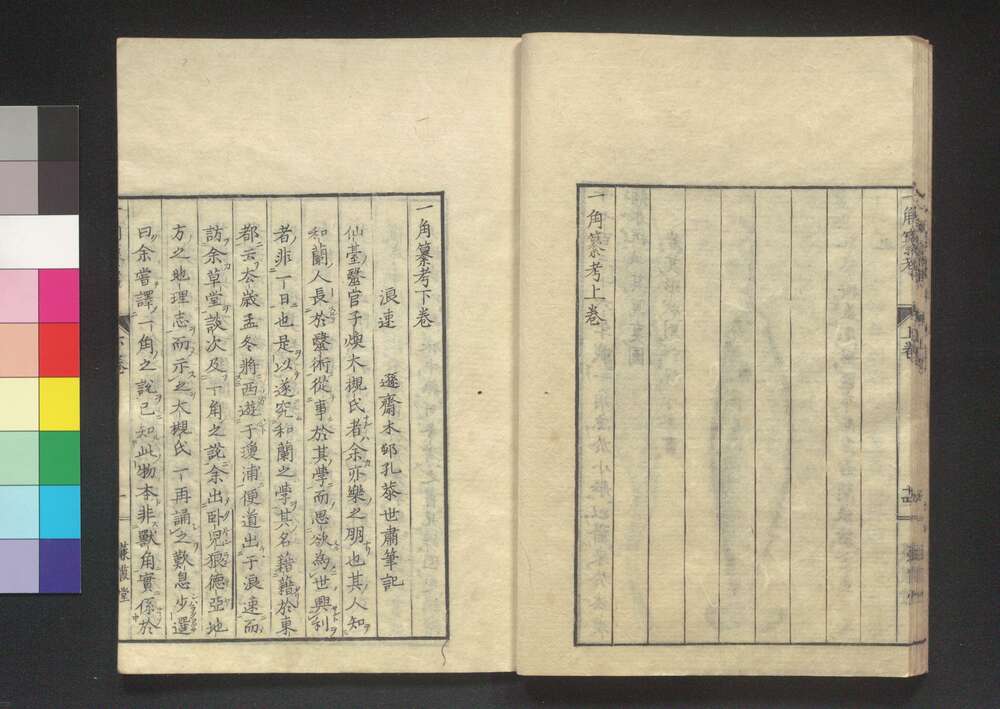 一角纂考上卷
一角纂考 上卷
一角纂考下卷
浪速 遜齋木邨孔恭世肅筆記
仙臺毉官子煥大槻氏者余亦樂之朋也其人知
和蘭人長於毉術從事於其學而思欲為世興利
者非一日也是以遂究和蘭之學其名藉藉於東
都云去歲孟冬將西遊于瓊浦便道出于浪速而
訪余草堂談次及一角之說余出卧兒狼德亞地
方之地理志而示之大槻氏一再誦之歎息少選
曰余嘗譯一角之說已知此物本非獸角實係於
下卷
一
蒹葭堂